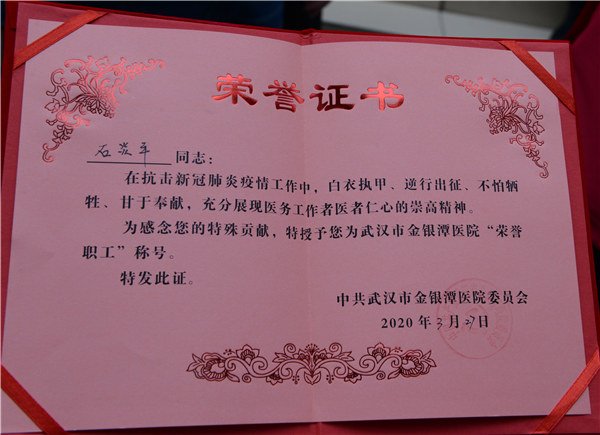 荣誉证书
石炎平 同志：
在抗击新冠肺炎疫情工作中，白衣执甲、逆行出征、不怕牺
牲、甘于奉献，充分展现医务工作者医者仁心的崇高精神。
为感念您的特殊贡献，特授予您为武汉市金银潭医院“荣誉
职工”称号。
特发此证。
中共武汉市金银潭医院委员会
2020 年 3 月 27 日